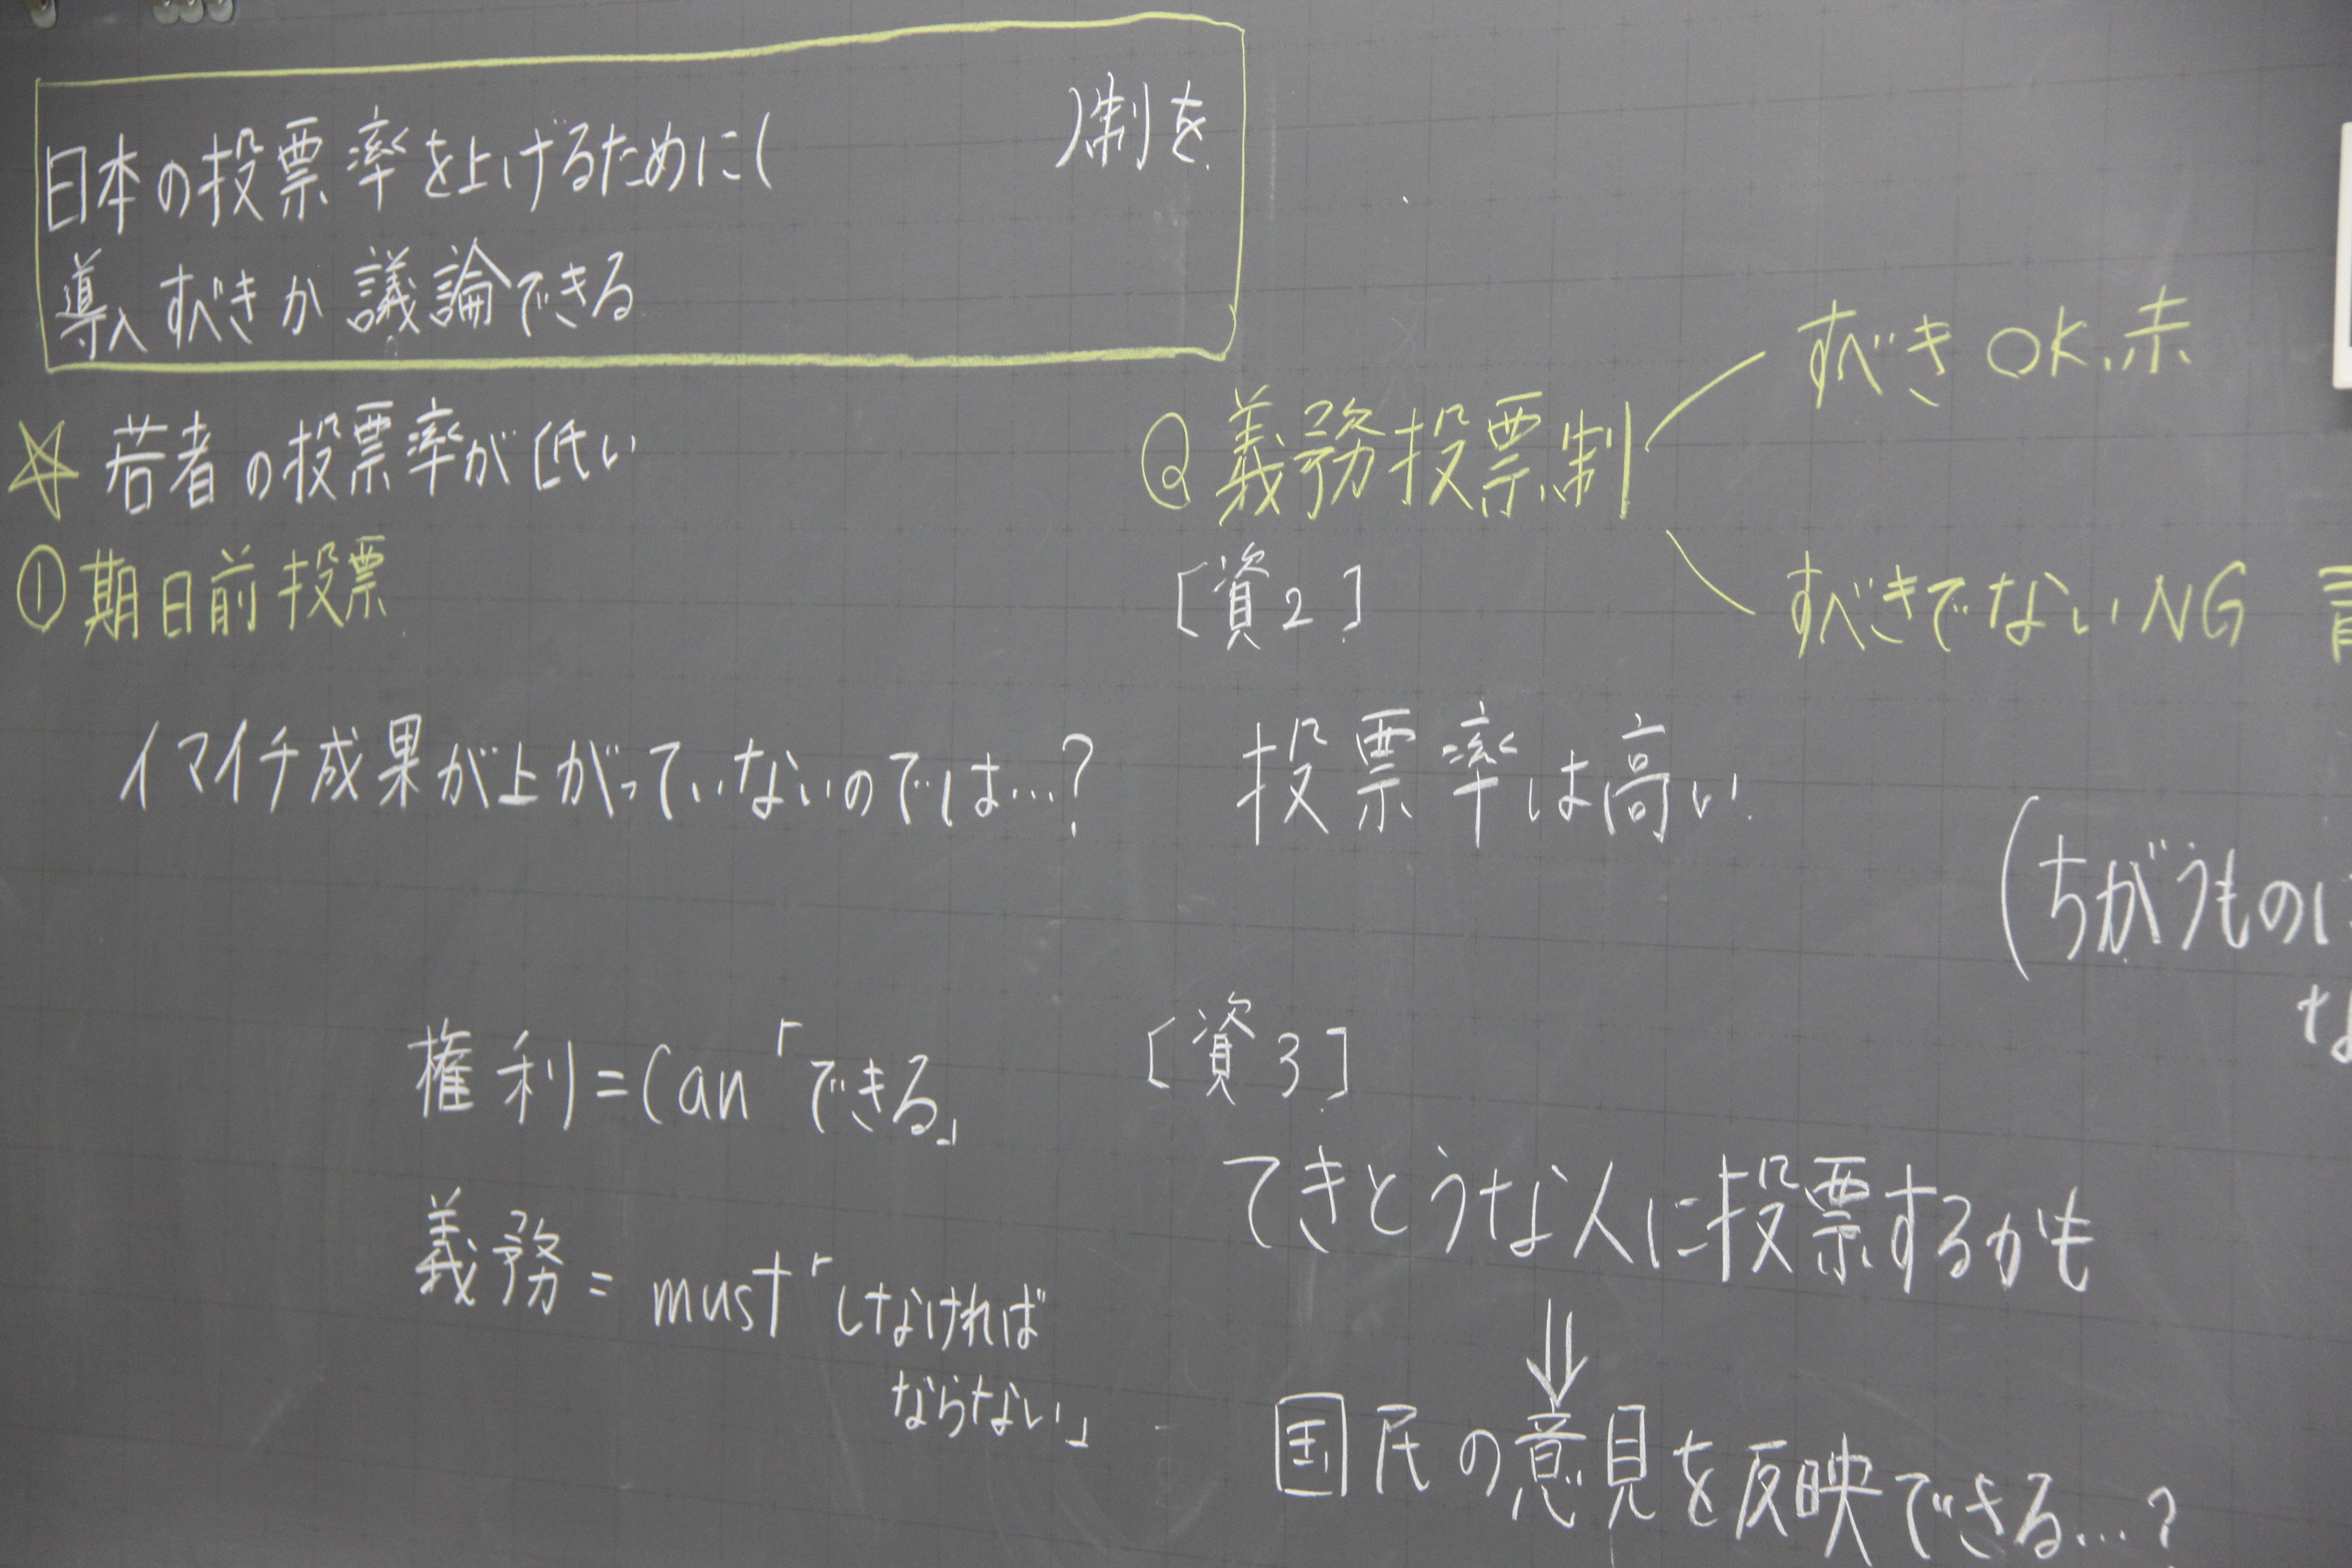 日本の投票率を上げるために(　　　　　)制を
導入すべきか議論できる
☆ 若者の投票率が低い
① 期日前投票
イマイチ成果が上がっていないのでは…?
権利=Can「できる」
義務=must「しなければ
ならない」
Q 義務投票制
すべき OK、赤
すべきでない NG
[資2]
投票率は高い
(ちがうものに
な
[資3]
てきとうな人に投票するかも
⇓
国民の意見を反映できる…?